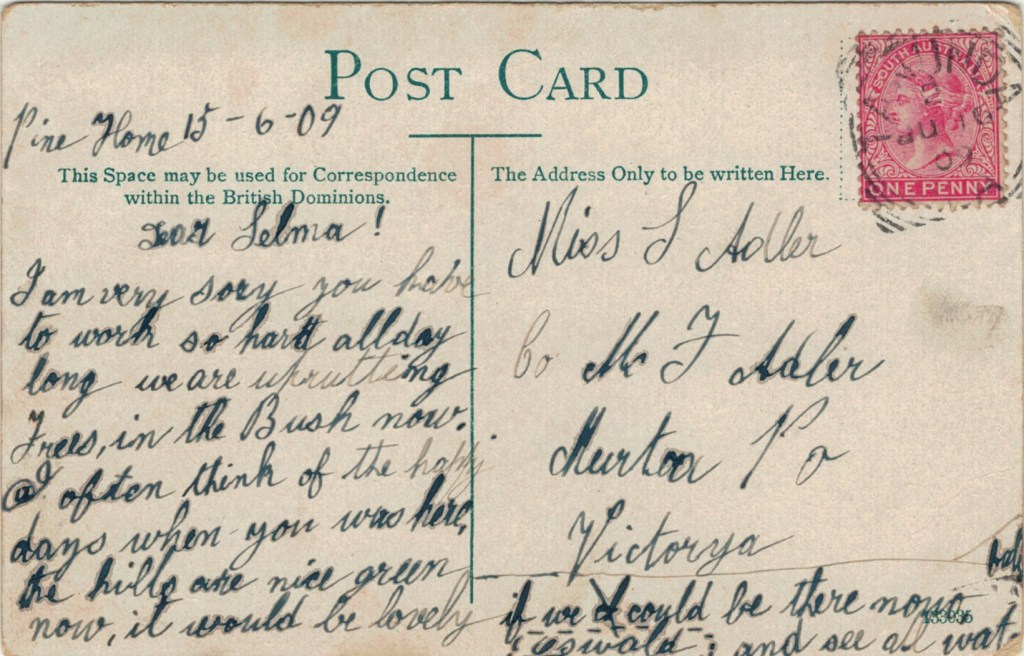 POST CARD
Pine Home 15-6-09
This Space may be used for Correspondence
within the British Dominions.
Dear Selma!
I am very sory you have
to work so hard all day
long we are uprutting
Trees, in the Bush now.
I often think of the happy
days when you was here,
the hills are nice green
now, it would be lovely
if we could be there now
Oswald; and see al wat-
The Address Only to be written Here.
SOUTH AUSTRALIA
ONE PENNY
Miss S Adler
Co Mr F Adler
Murtoa P o
Victorya
133935